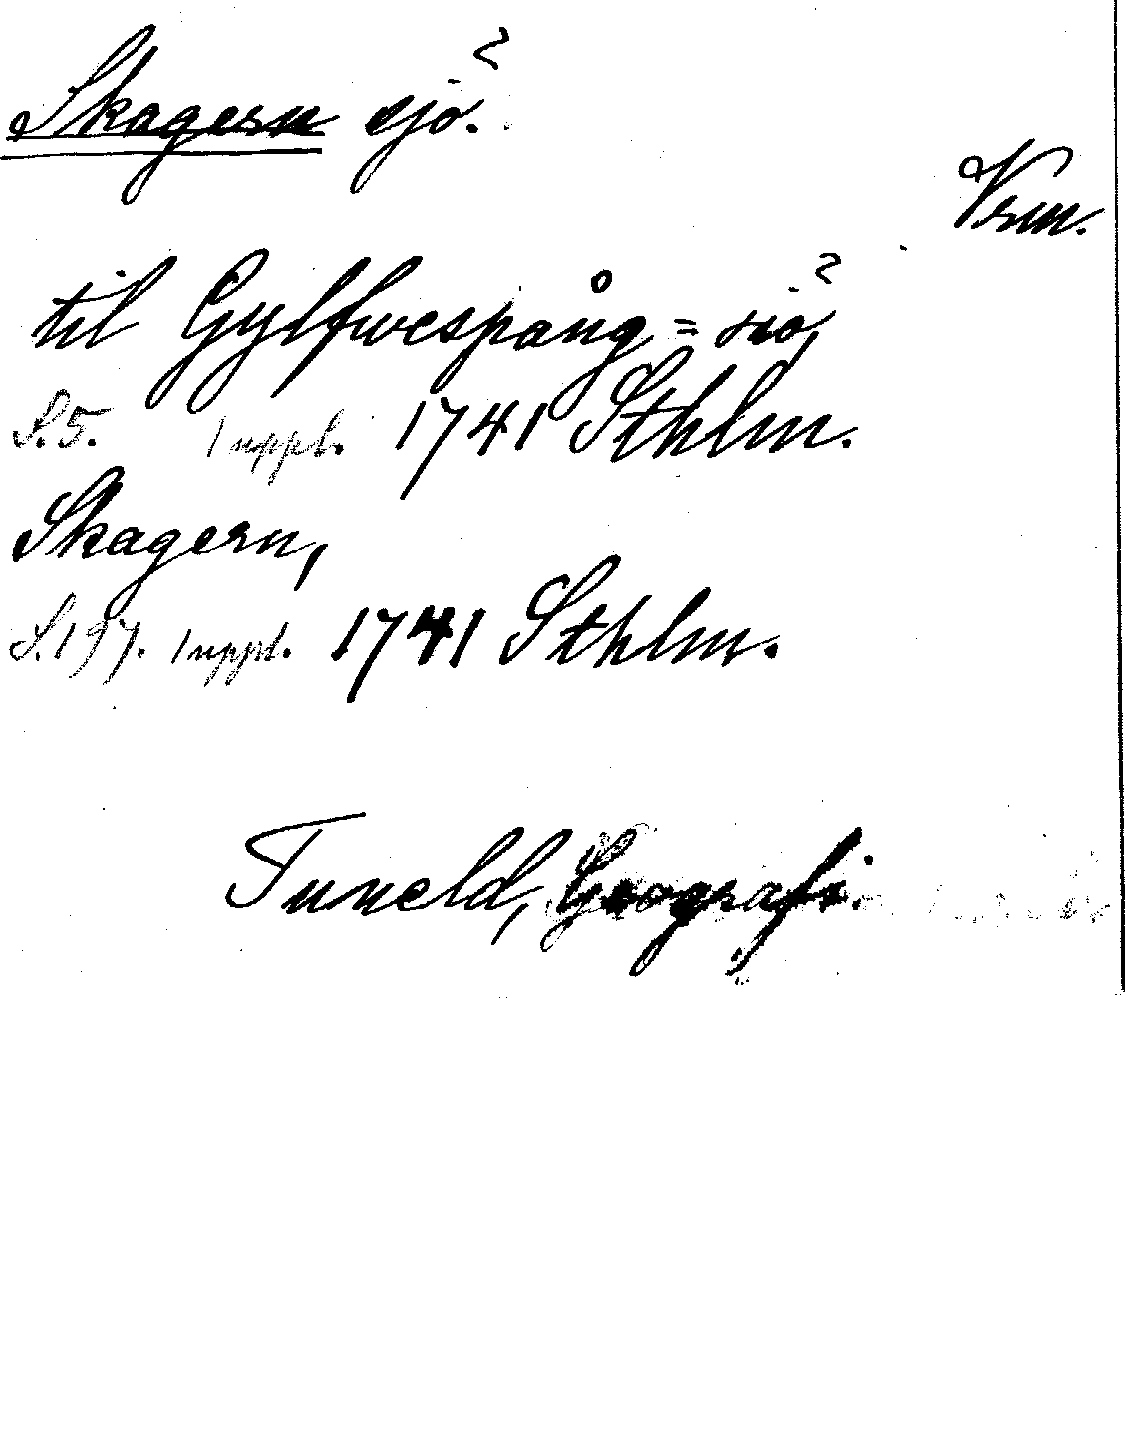 Skagern sjö.
Vrm.
til Gylfwespång=siö,
S.5. 1 uppl. 1741 Sthlm.
Skagern,
S.197. 1 uppl. 1741 Sthlm.
Tuneld, Geografi.